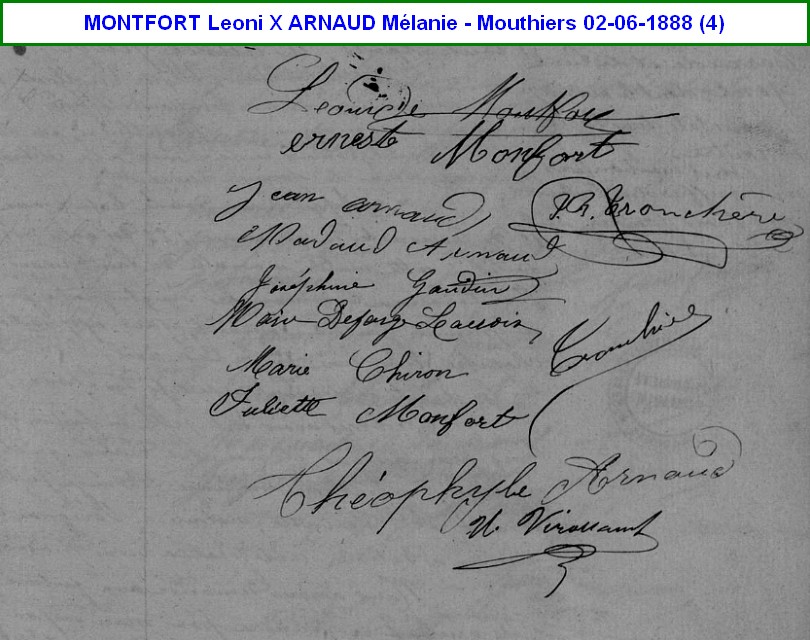 MONTFORT Leoni X ARNAUD Mélanie - Mouthiers 02-06-1888 (4)
Leonide Montfort
ernest Monfort
Jean arnaud
P. R. Tronchère
Nadaud Arnaud
Joséphine Gaudin
Marie Deforge Lacroix
Marie Chiron
Juliette Monfort
Théophyle Arnaud